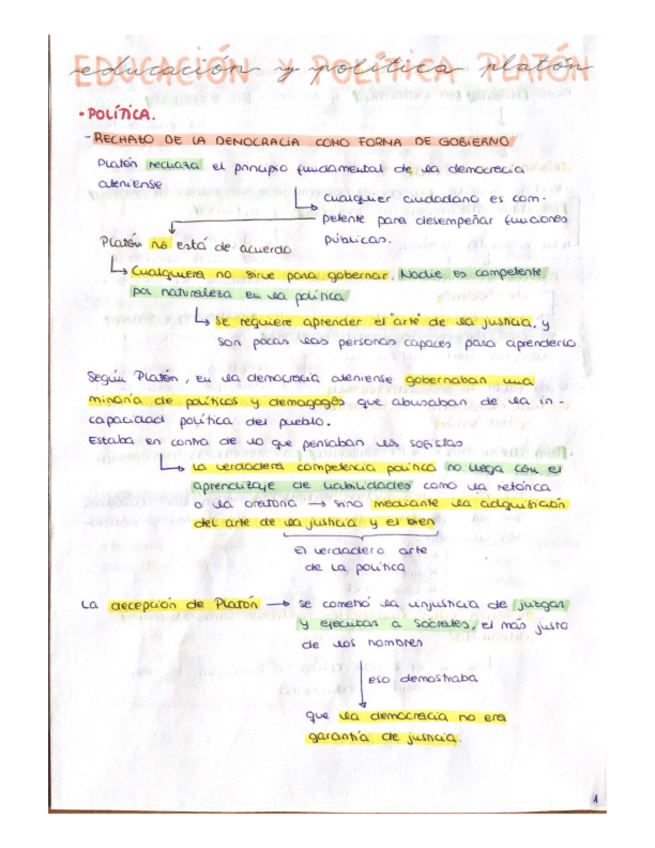 EDUCACIÓN Y POLÍTICA PLATÓN
educación y política platón
• POLÍTICA.
- RECHAZO DE LA DEMOCRACIA COMO FORMA DE GOBIERNO
Platón rechaza el principio fundamental de la democracia
ateniense
cualquier ciudadano es com-
petente para desempeñar funciones
públicas.
Platón no está de acuerdo
Cualquiera no sirve para gobernar. Nadie es competente
por naturaleza en la política
se requiere aprender el "arte" de la justicia, y
son pocas las personas capaces para aprenderlo
Según Platón, en la democracia ateniense gobernaban una
minoría de políticos y demagogos que abusaban de la in-
capacidad política del pueblo.
Estaba en contra de lo que pensaban los sofistas
La verdadera competencia política no llega con el
aprendizaje de habilidades como la retórica
o la oratoria → sino mediante la adquisición
del arte de la justicia y el bien
El verdadero arte
de la política
La decepción de Platón → se cometió la injusticia de juzgar
y ejecutar a Sócrates, el más justo
de los hombres
eso demostraba
que la democracia no era
garantía de justicia.
1